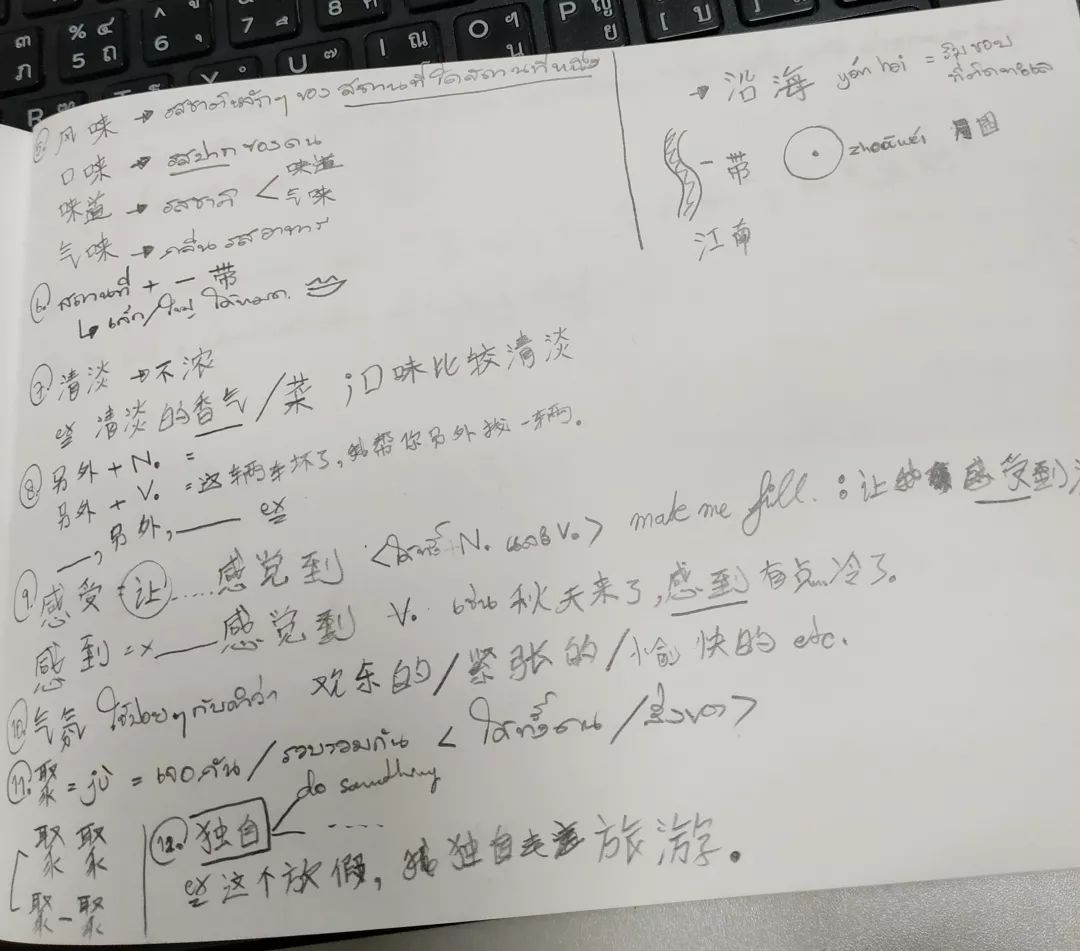 5. 风味 → รสชาติหลักๆ ของ สถานที่ใดสถานที่หนึ่ง
口味 → รสปากของคน
味道 → รสชาติ < 味道
气味
气味 → กลิ่นรสอาหาร
6. สถานที่ + 一带
↳ เล็ก/ใหญ่ ได้หมด.
7. 清淡 → 不浓
ex 清淡的香气/菜 ; 口味比较清淡
8. 另外 + N. =
另外 + V. = 这辆车坏了,我帮你另外找一辆。
__, 另外, ____ ex
9. 感受 = 让.....感觉到 <ได้ทั้ง+N. และV.> make me fill. : 让 感受到
感到 = x ____感觉到 V. เช่น 秋天来了,感到有点冷了。
10. 气氛 ใช้บ่อยๆกับคำว่า 欢乐的/紧张的/愉快的 etc.
11. 聚 = jù = เจอกัน/รวบรวมกัน < ได้ทั้งคน/สิ่งของ >
聚聚
聚一聚
12. 独自 — ....
do somthing
ex 这个放假, 我独自去 旅游。
→ 沿海 yán hǎi = ริมชอบ
ที่ติดทะเล
一带
zhōuwéi 周围
江南